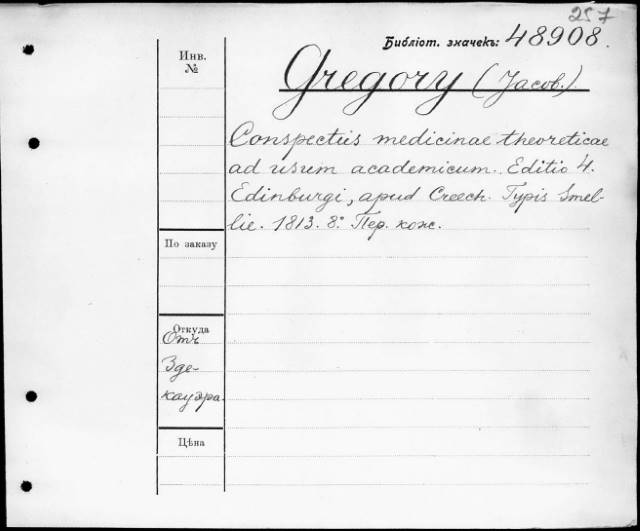 257
Библіот. значекъ: 48908.
Инв.
№
Gregory (Jacob.)
Conspectus medicinae theoreticae
ad usum academicum. Editio 4.
Edinburgi, apud Creech. Typis Smel-
lie. 1813. 8º. Пер. кож.
По заказу
Откуда
Отъ
Зде-
кауэра.
Цѣна